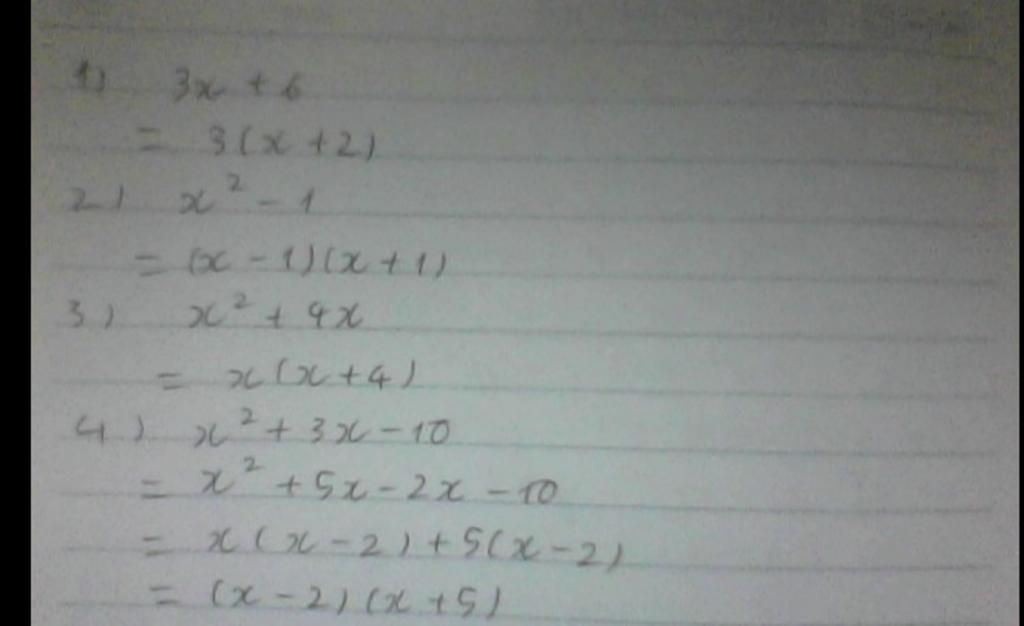 1) 3x + 6
= 3(x + 2)
2) x² - 1
= (x - 1)(x + 1)
3) x² + 4x
= x(x + 4)
4) x² + 3x - 10
= x² + 5x - 2x - 10
= x(x - 2) + 5(x - 2)
= (x - 2)(x + 5)